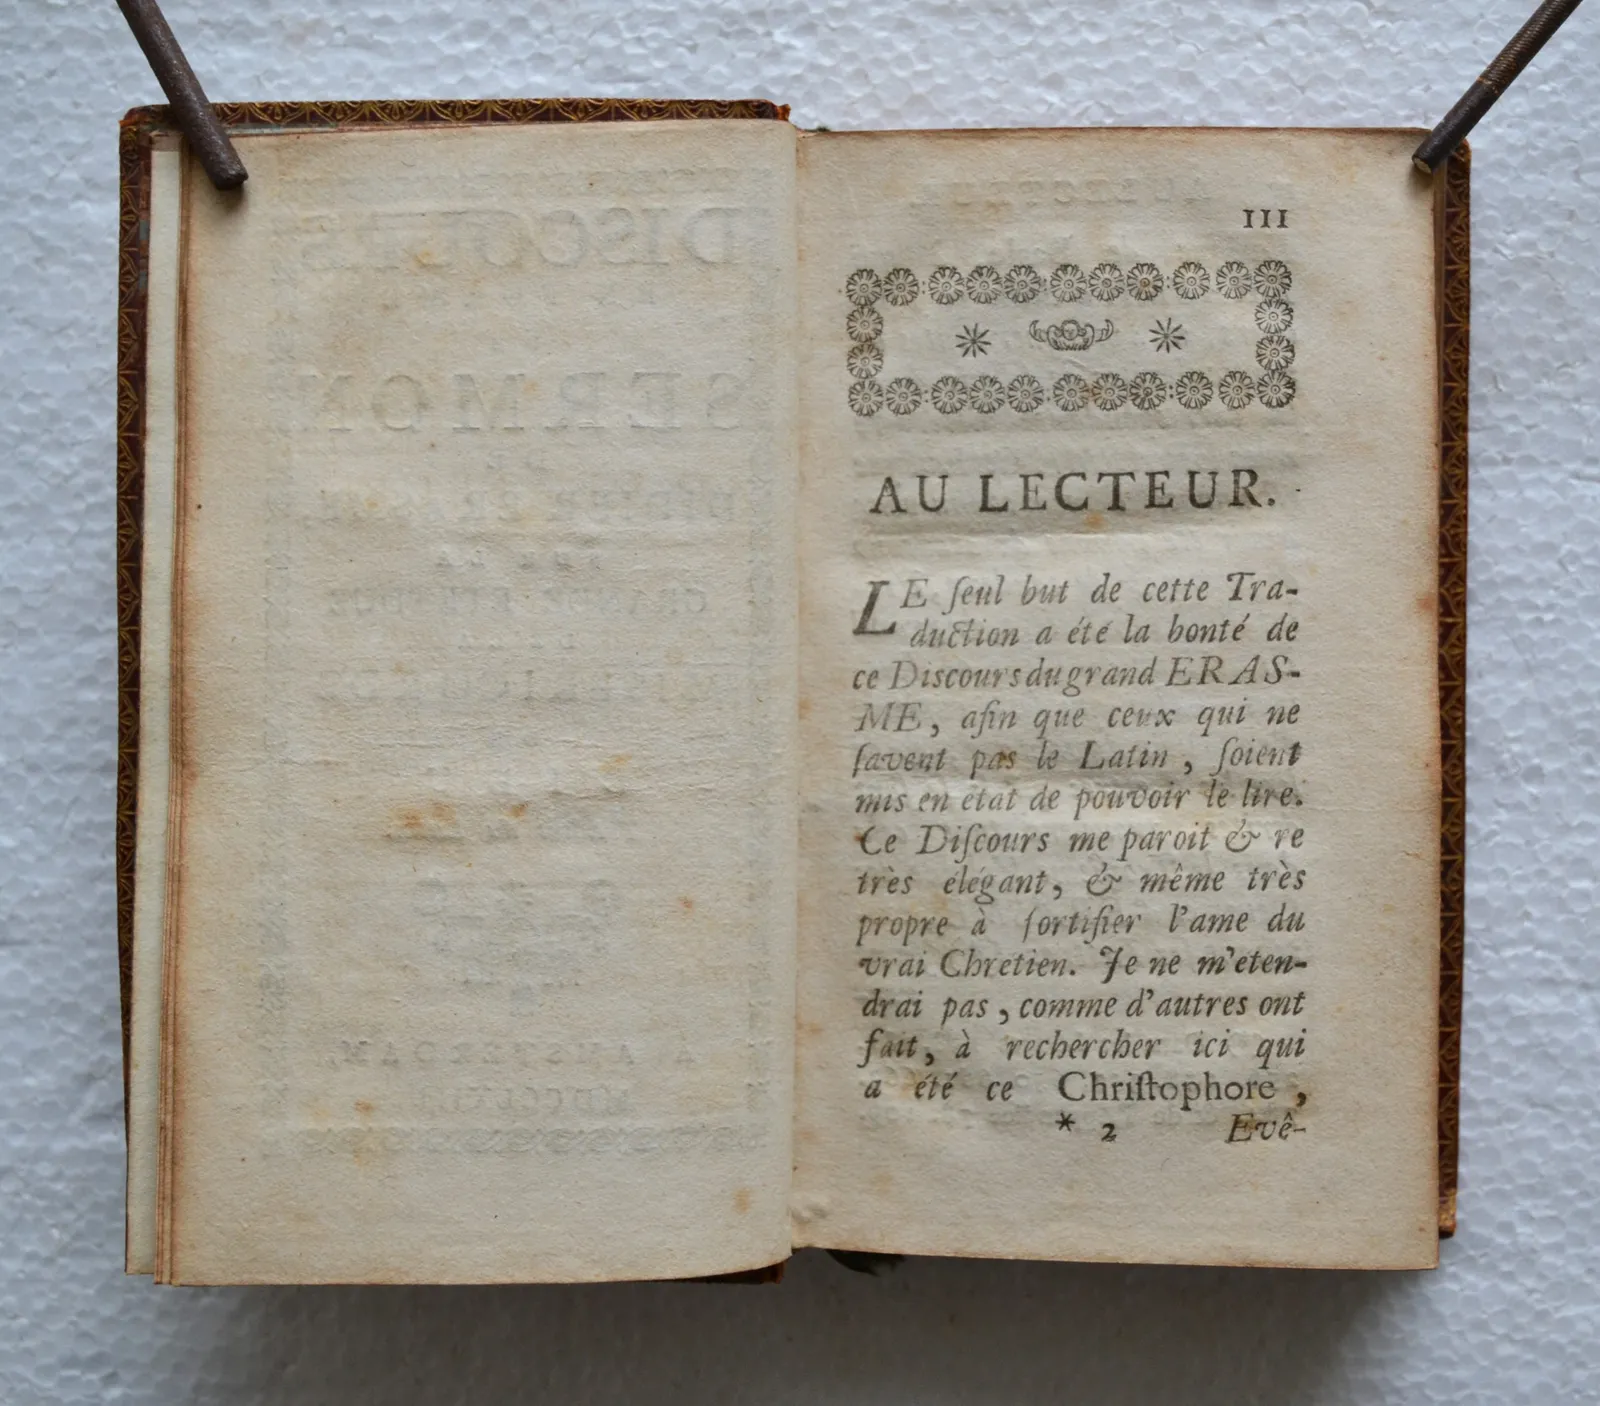 III
AU LECTEUR.
LE ſeul but de cette Tra-
duction a été la bonté de
ce Discours du grand ERAS-
ME, afin que ceux qui ne
ſavent pas le Latin, ſoient
mis en état de pouvoir le lire.
Ce Diſcours me paroit & re
très élégant, & même très
propre à fortifier l'ame du
vrai Chretien. Je ne m'eten-
drai pas, comme d'autres ont
fait, à rechercher ici qui
a été ce Chriſtophore,
* 2 Evê-